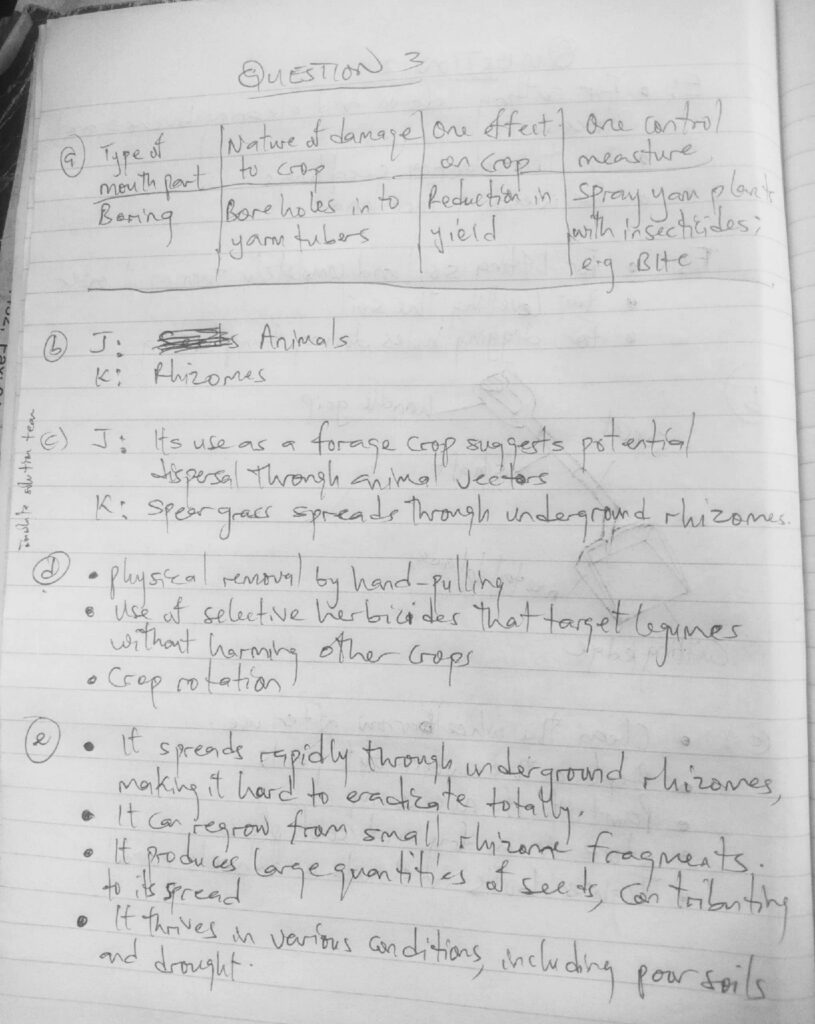 QUESTION 3
(a) Type of mouth part | Nature of damage to crop | One effect on crop | One control measure
Boring | Bore holes in to yam tubers | Reduction in yield | Spray yam plants with insecticides; e.g BHC
(b) J: Animals
K: Rhizomes
(c) J: Its use as a forage crop suggests potential
dispersal through animal vectors
K: Spear grass spreads through underground rhizomes.
(d) • physical removal by hand-pulling
• Use of selective herbicides that target legumes
without harming other crops
• Crop rotation
(e) • It spreads rapidly through underground rhizomes,
making it hard to eradicate totally.
• It can regrow from small rhizome fragments.
• It produces large quantities of seeds, contributing
to its spread
• It thrives in various conditions, including poor soils
and drought.
solution team